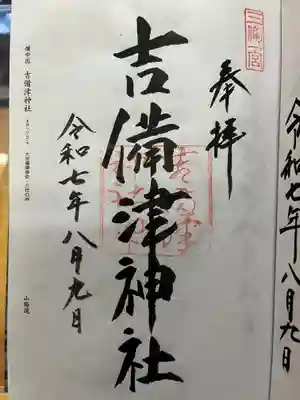 三備一宮
奉拝
吉備津神社
令和七年八月九日
備中国 吉備津神社
山陽道
令和七年八月九日